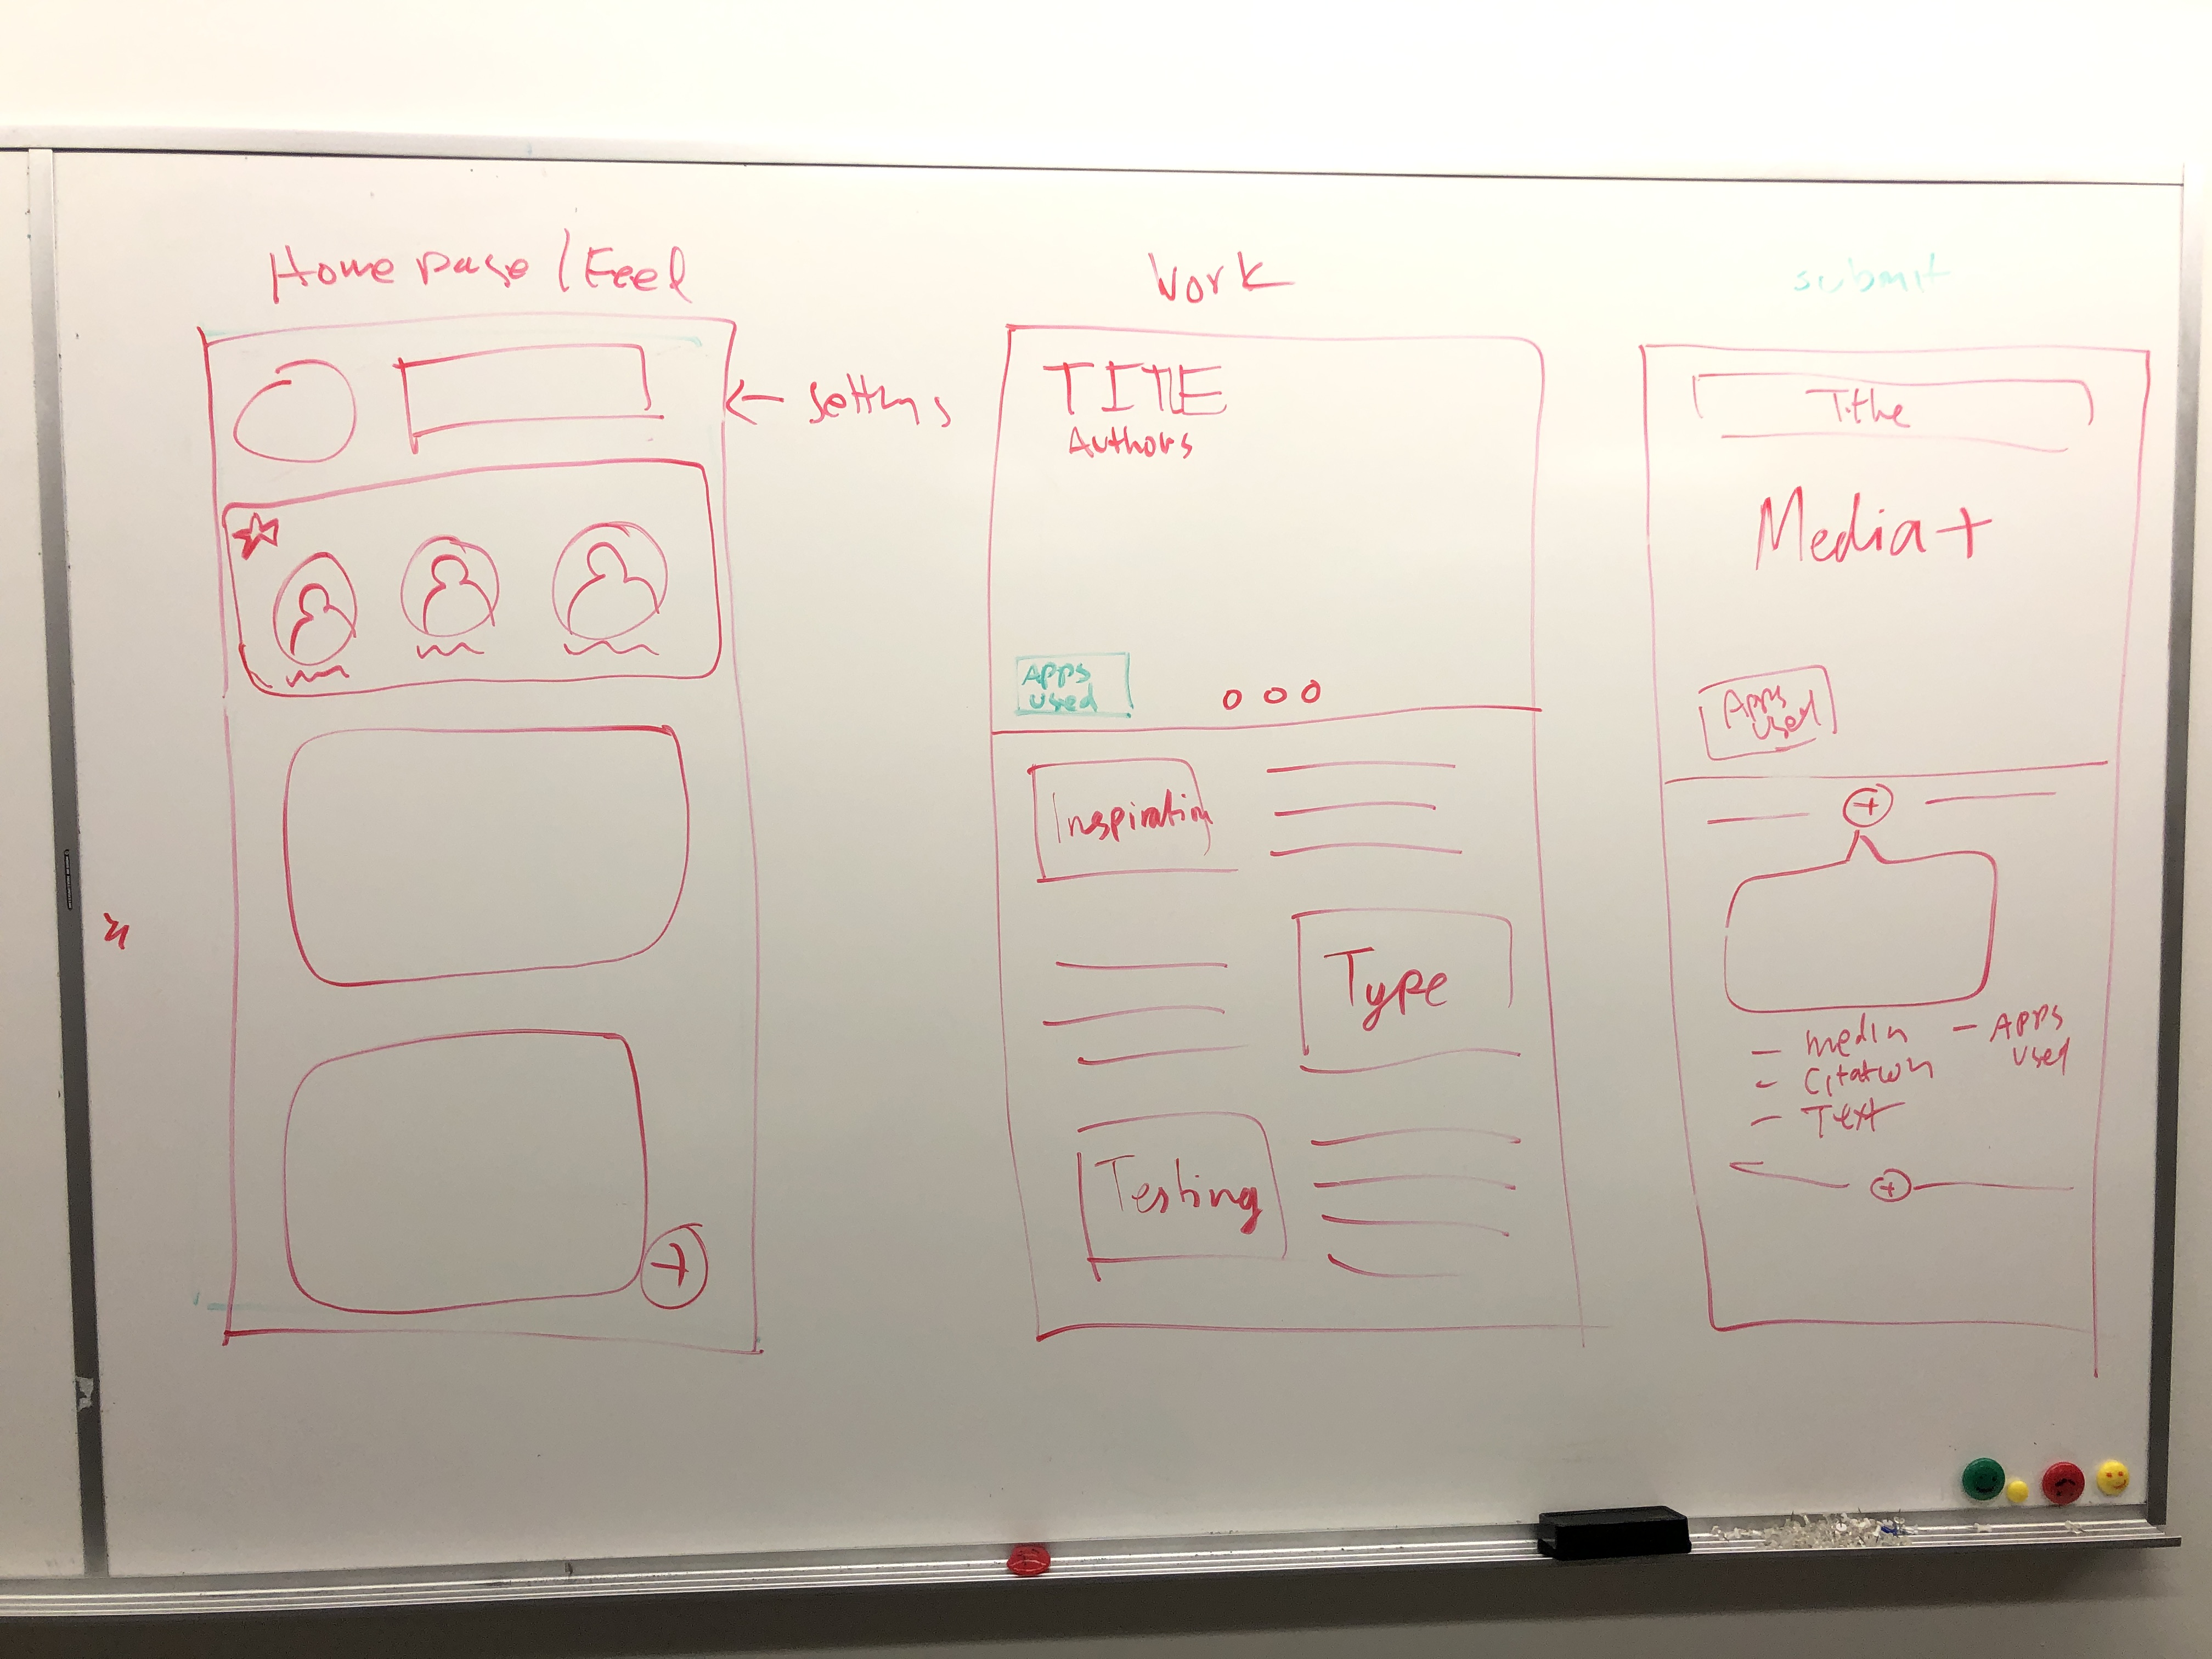 Home page / Feed
← settings
Work
TITLE
Authors
Apps
used
Inspiration
Type
Testing
submit
Title
Media +
Apps
used
+
- media
- citation
- Text
- Apps
used
+
+